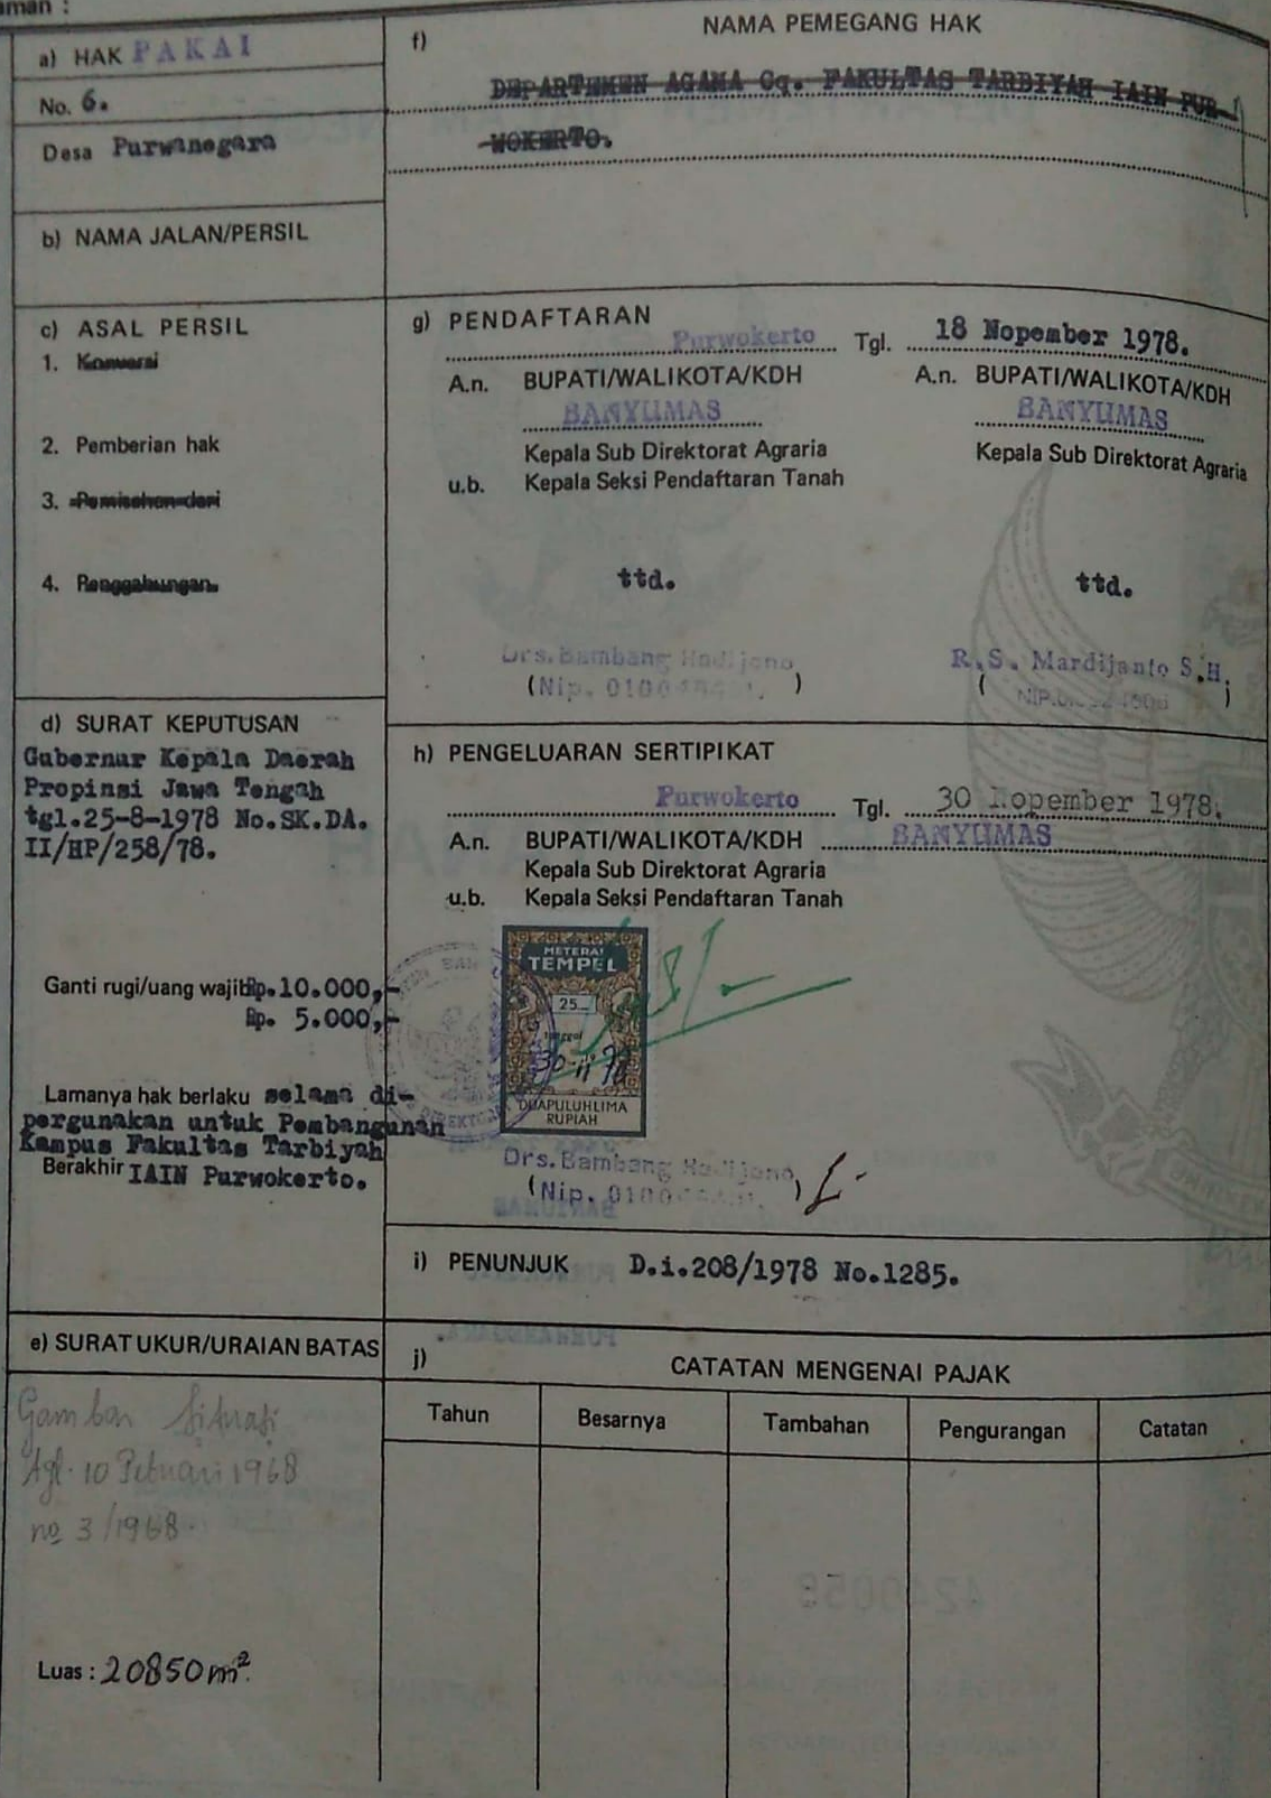 a) HAK PAKAI
No. 6.
Desa Purwanegara
b) NAMA JALAN/PERSIL
c) ASAL PERSIL
1. Konversi
2. Pemberian hak
3. Pemisahan dari
4. Penggabungan
d) SURAT KEPUTUSAN
Gubernur Kepala Daerah
Propinsi Jawa Tengah
tgl.25-8-1978 No.SK.DA.
II/HP/258/78.
Ganti rugi/uang wajib Rp.10.000,-
Rp. 5.000,-
Lamanya hak berlaku selama di-
pergunakan untuk Pembangunan
Kampus Fakultas Tarbiyah
Berakhir IAIN Purwokerto.
e) SURAT UKUR/URAIAN BATAS
Gambar Situasi
Tgl. 10 Pebruari 1968
no 3/1968.
Luas : 20850 m².
f) NAMA PEMEGANG HAK
DEPARTEMEN AGAMA Cq. FAKULTAS TARBIYAH IAIN PUR-
WOKERTO.
g) PENDAFTARAN
Purwokerto Tgl. 18 Nopember 1978.
A.n. BUPATI/WALIKOTA/KDH
BANYUMAS
Kepala Sub Direktorat Agraria
u.b. Kepala Seksi Pendaftaran Tanah
ttd.
Drs. Bambang Hadijono
(Nip. )
A.n. BUPATI/WALIKOTA/KDH
BANYUMAS
Kepala Sub Direktorat Agraria
ttd.
R.S. Mardijanto S.H.
( NIP. )
h) PENGELUARAN SERTIPIKAT
Purwokerto Tgl. 30 Nopember 1978.
A.n. BUPATI/WALIKOTA/KDH BANYUMAS
Kepala Sub Direktorat Agraria
u.b. Kepala Seksi Pendaftaran Tanah
METERAI
TEMPEL
25
tanggal
30-11-78
DUAPULUHLIMA
RUPIAH
Drs. Bambang Hadijono
(Nip. )
i) PENUNJUK D.i.208/1978 No.1285.
j) CATATAN MENGENAI PAJAK
Tahun Besarnya Tambahan Pengurangan Catatan